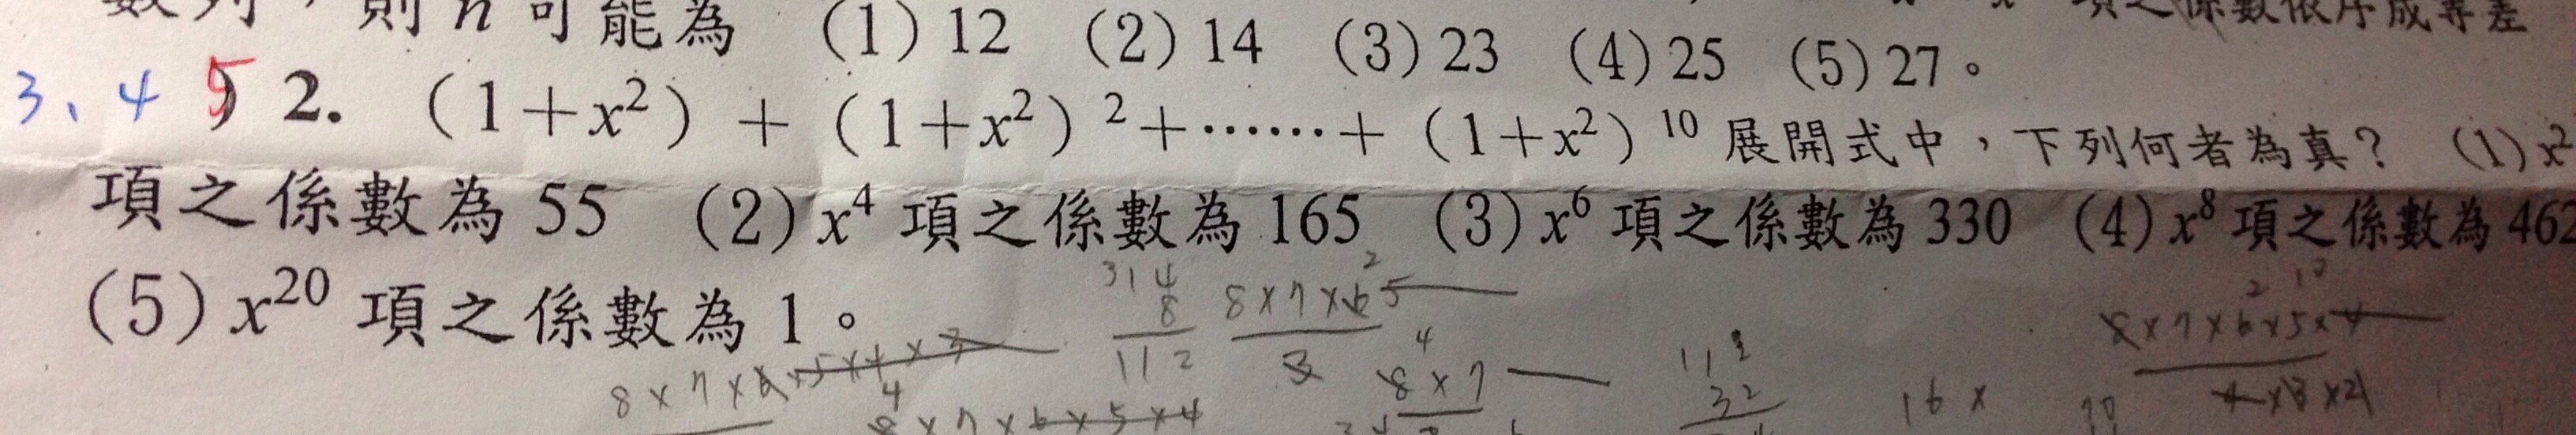 數列，則 n 可能為 (1) 12 (2) 14 (3) 23 (4) 25 (5) 27。
項之係數依序成等差
3、4 5) 2. (1+x²) + (1+x²)²+……+ (1+x²)¹⁰ 展開式中，下列何者為真？ (1) x²
項之係數為 55 (2) x⁴ 項之係數為 165 (3) x⁶ 項之係數為 330 (4) x⁸ 項之係數為 462
(5) x²⁰ 項之係數為 1。
3 14
8
112
8×7×6
3
8×7
112
32
16×
8×7×6×5×4
4×3×2
8×7×6×5×4×3
8×7×6×5×4